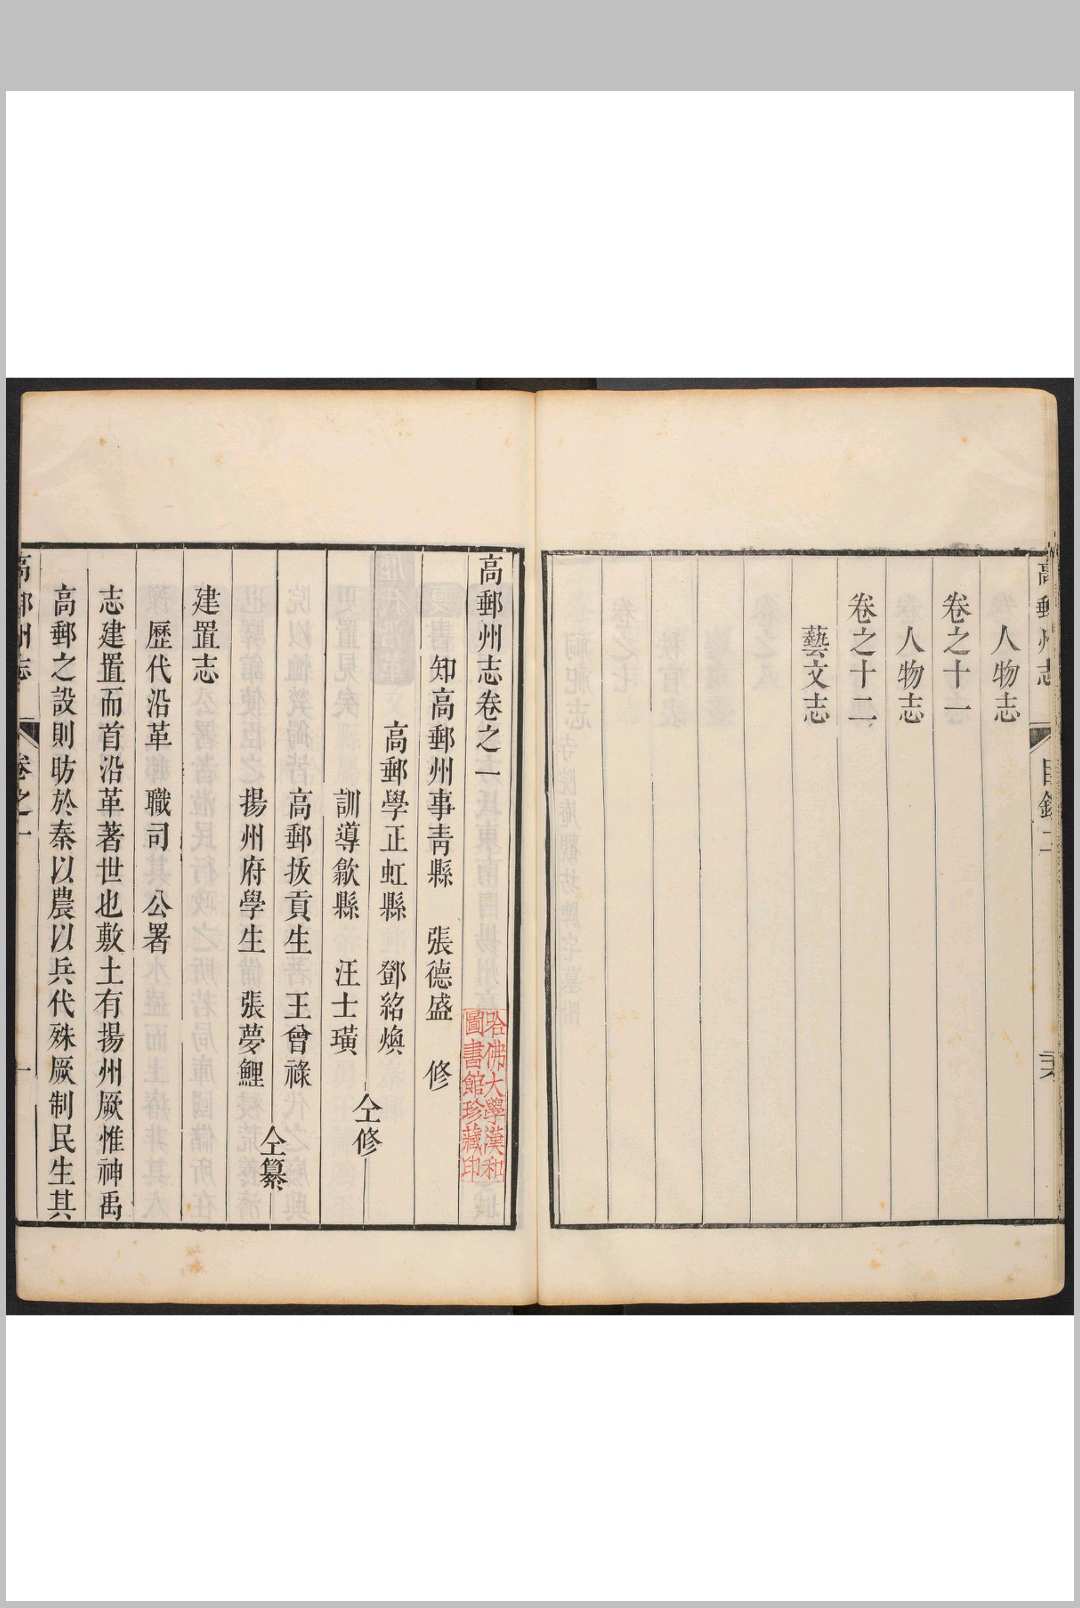 人物志
卷之十一
人物志
卷之十二
藝文志
高郵州志卷之一
知高郵州事青縣 張德盛 修
高郵學正虹縣 鄧紹煥
訓導歙縣 汪士璜
仝修
高郵拔貢生 王曾祿
揚州府學生 張夢鯉
仝纂
建置志
歷代沿革 職司 公署
志建置而首沿革著世也敷土有揚州厥惟神禹
高郵之設則昉於秦以農以兵代殊厥制民生其
高郵州志 卷之一 一
哈佛大學漢和
圖書館珍藏印